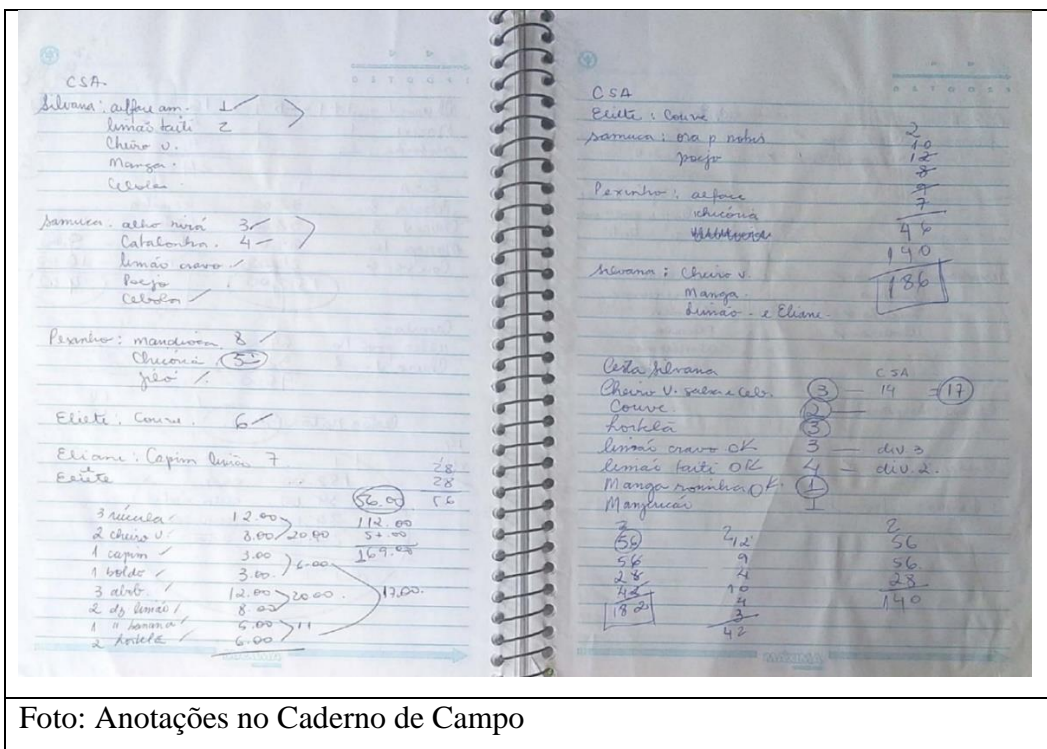 CSA.
Silvana: alface am. 1
limão taiti 2
Cheiro v.
Manga.
Cebolas.
Samuca. alho nirá 3
Catalonha. 4
limão cravo
Poejo
Cebolas
Pexinho: mandioca 8
Chicória 5
jiló
Eliete: Couve. 6
Eliane: Capim limão 7
Eliete
28
28
56.00 56
3 rúcula 12.00 112.00
2 cheiro v. 8.00 20.00
1 capim 3.00 6.00 169.00
1 boldo 3.00
3 abob. 12.00 20.00. 17.00.
2 dz limão 8.00
1 " banana 5.00 11
2 hortelã 6.00
CSA
Eliete: Couve
Samuca: ora p nobis
poejo
Pexinho: alface
chicória
2
10
12
8
9
7
46
140
186
Silvana: Cheiro v.
Manga.
Limão - e Eliane.
Cesta Silvana CSA
Cheiro V. salsa e Ceb. 3 — 14 = 17
Couve. 2
hortelã 3
limão cravo OK 3 — div. 3
limão taiti OK 4 — div. 2.
Manga rosinha OK. 1
Manjericão 1
56 12 56
56 9 56
28 4 28
42 10 140
182 4
3
42
Foto: Anotações no Caderno de Campo